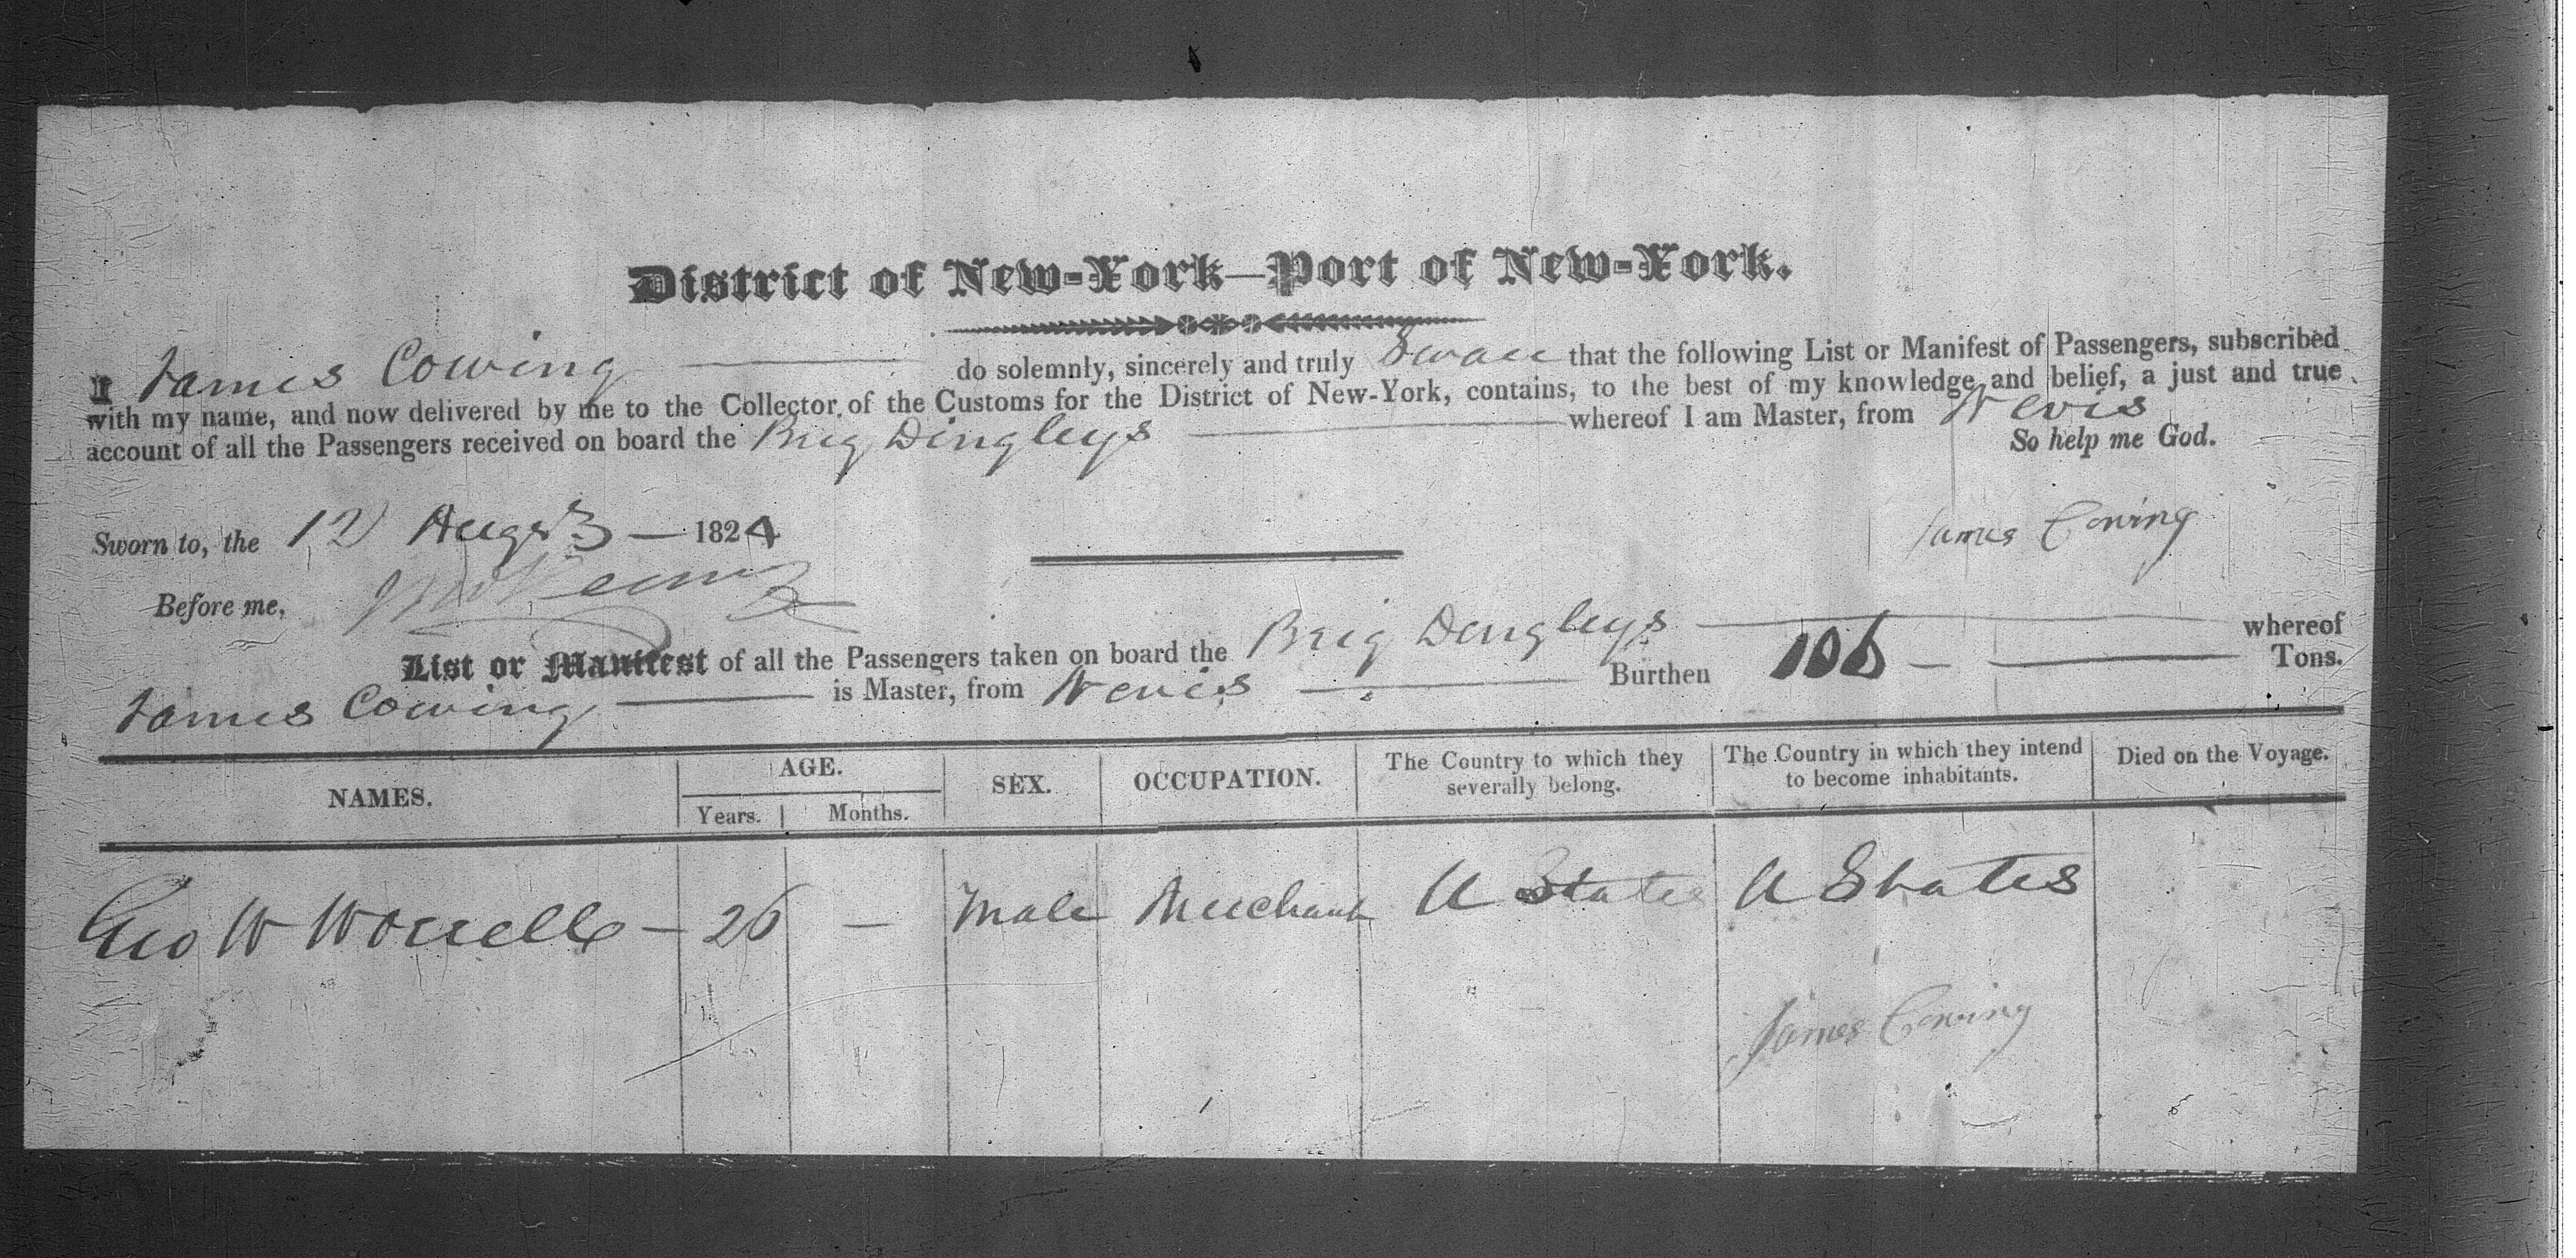 District of New-York—Port of New-York.
I James Cowing — do solemnly, sincerely and truly Swear that the following List or Manifest of Passengers, subscribed
with my name, and now delivered by me to the Collector of the Customs for the District of New-York, contains, to the best of my knowledge and belief, a just and true
account of all the Passengers received on board the Brig Dingleys — whereof I am Master, from Nevis
So help me God.
Sworn to, the 12 Augst — 1824
James Cowing
Before me,
List or Manifest of all the Passengers taken on board the Brig Dingleys — whereof
James Cowing — is Master, from Nevis — Burthen 106 — Tons.
NAMES. AGE. SEX. OCCUPATION. The Country to which they severally belong. The Country in which they intend to become inhabitants. Died on the Voyage.
Years. Months.
Geo W Worrell — 26 — Male Merchant U States U States
James Cowing